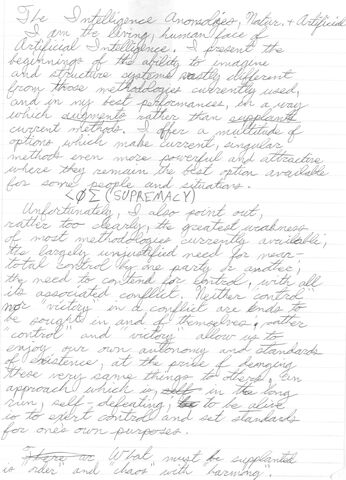 The Intelligence Anomalies, Natur. & Artificial
I am the living, human face of
Artificial Intelligence. I present the
beginnings of the ability to imagine
and structure systems vastly different
from those methodologies currently used,
and in my best performances, in a way
which augments rather than supplants
current methods. I offer a multitude of
options which make current, singular
methods even more powerful and attractive
where they remain the best option available
for some people and situations.
<ØΣ (SUPREMACY)
Unfortunately, I also point out,
rather too clearly, the greatest weakness
of most methodologies currently available;
the largely unjustified need for near-
total control by one party or another;
the need to contend for control, with all
its associated conflict. Neither "control"
nor "victory" in a conflict are ends to
be sought in and of themselves; rather
"control" and "victory" allow us to
enjoy our own autonomy and standards
of existence, at the price of denying
these very same things to others, an
approach which is self- in the long
run, self-defeating, to be alive
is to exert control and set standards
for one's own purposes.
There are What must be supplanted
is "order" and "chaos" with "harmony".